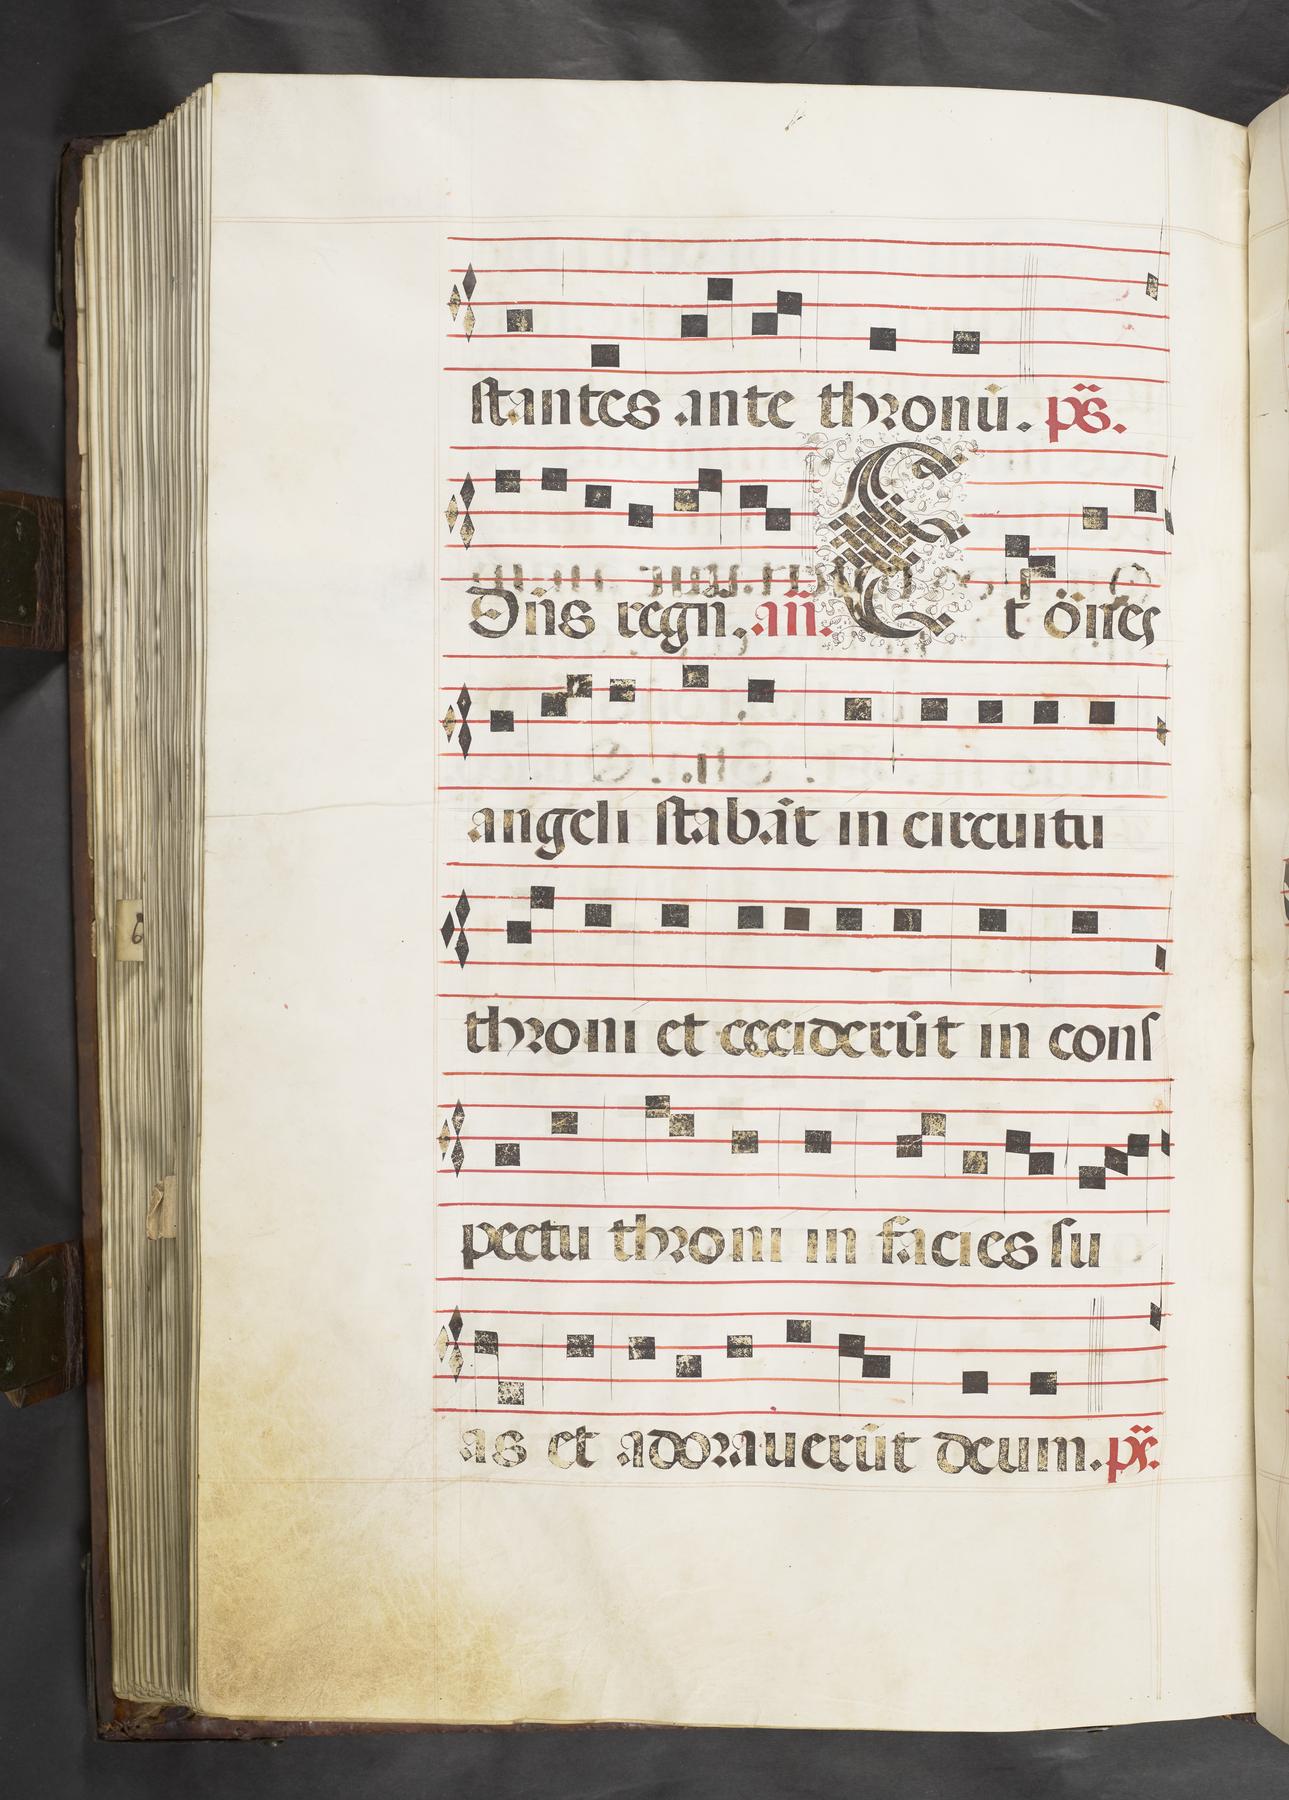 stantes ante thronū. ps.
Dn̄s regn̄. añ. Et om̄es
angeli stabāt in circuitu
throni et ceciderūt in cons
pectu throni in facies su
as et adorauerūt deum. ps.
6